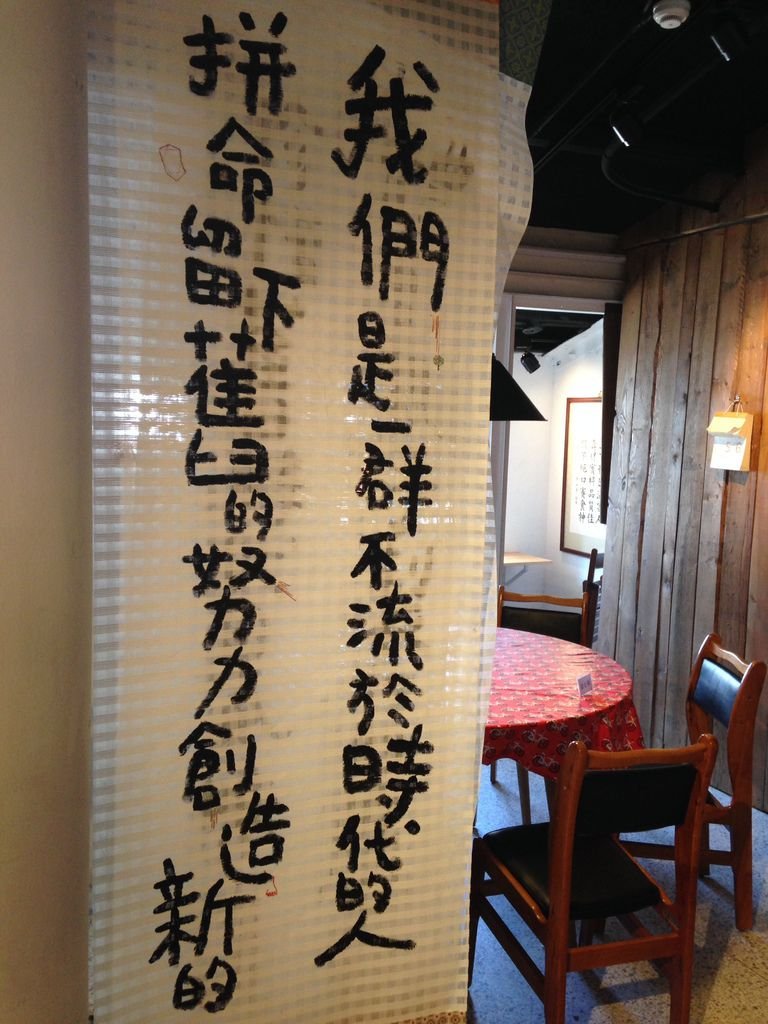 我們是一群不流於時代的人
拼命留下舊的努力創造新的